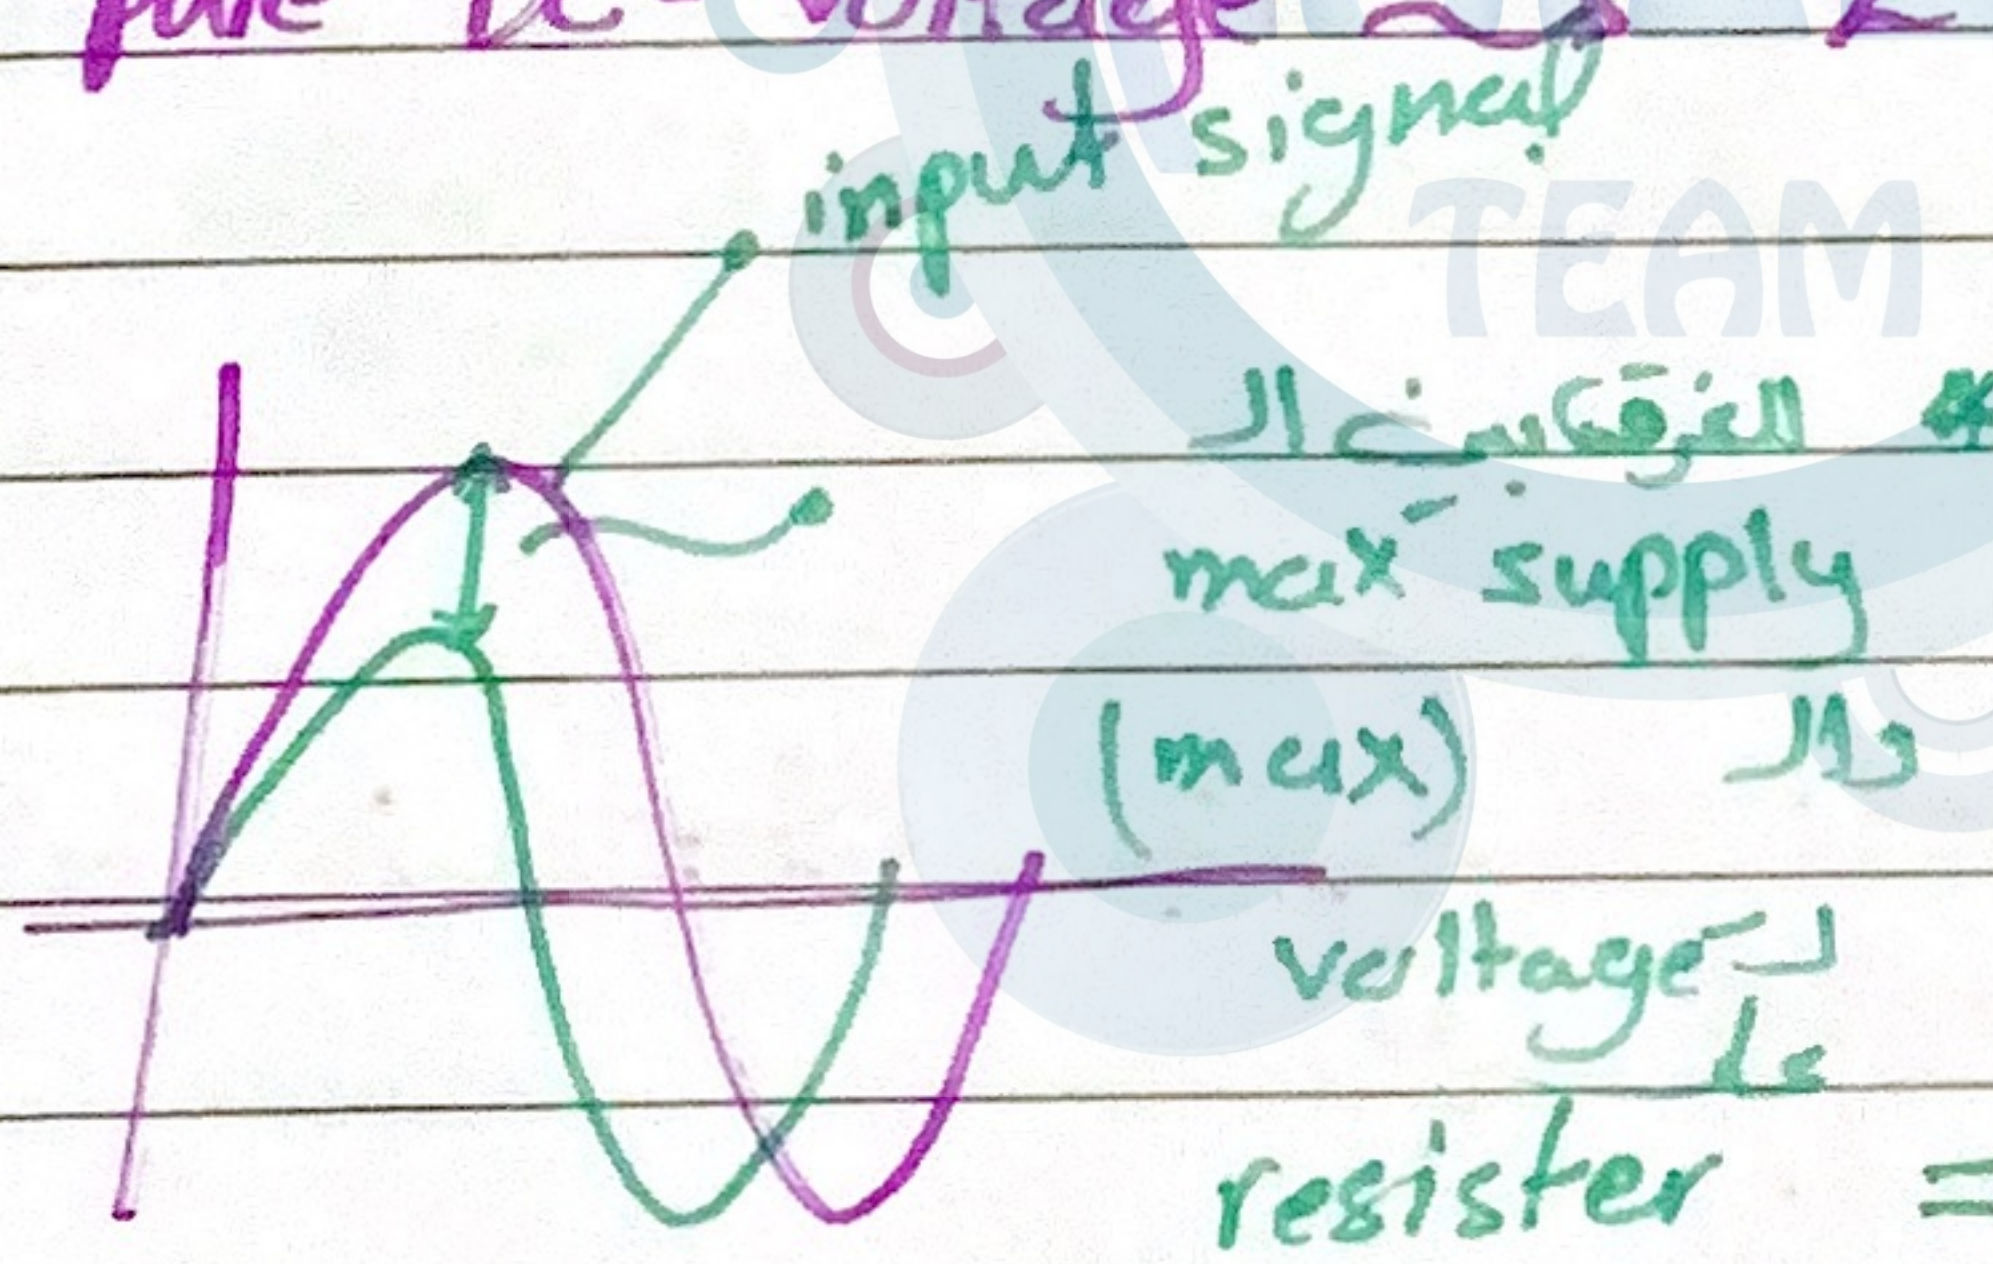 pure DC voltage
input signal
TEAM
* الفرق بين ال
max supply
وال (max)
voltage ال
على
resister =